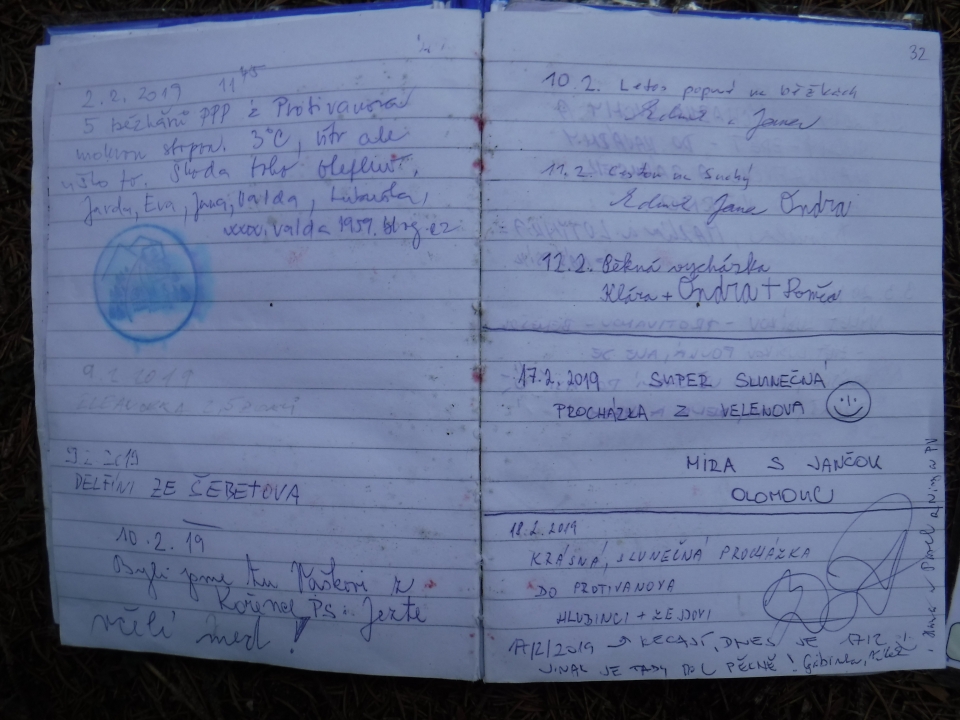 2.2.2019 11 45
5 běžkařů PPP z Protivanova
mokrou stopou. 3°C, vítr ale
ušlo to. Škoda toho oteplení.
Jarda, Eva, Jana, Valda, Liduška,
www.valda1959.blog.cz
9.2.2019
9.2.2019
DELFÍNI ZE ŠEBETOVA
10.2.19
Byli jsme tu Páškovi z
Kořence PS: Jezte
včelí med!
32
10.2. Letos poprvé na běžkách
Jana
11.2. Cestou na Suchý
Jana Ondra
12.2. Pěkná vycházka
Klára + Ondra +
17.2.2019 SUPER SLUNEČNÁ
PROCHÁZKA Z VELENOVA
MIRA S JANČOU
OLOMOUC
18.2.2019
KRÁSNÁ, SLUNEČNÁ PROCHÁZKA
DO PROTIVANOVA
HLUBINCI + ZEJDOVI
17/2/2019 → KECAJÍ, DNES JE 17.2
JINAK JE TADY PĚKNĚ!